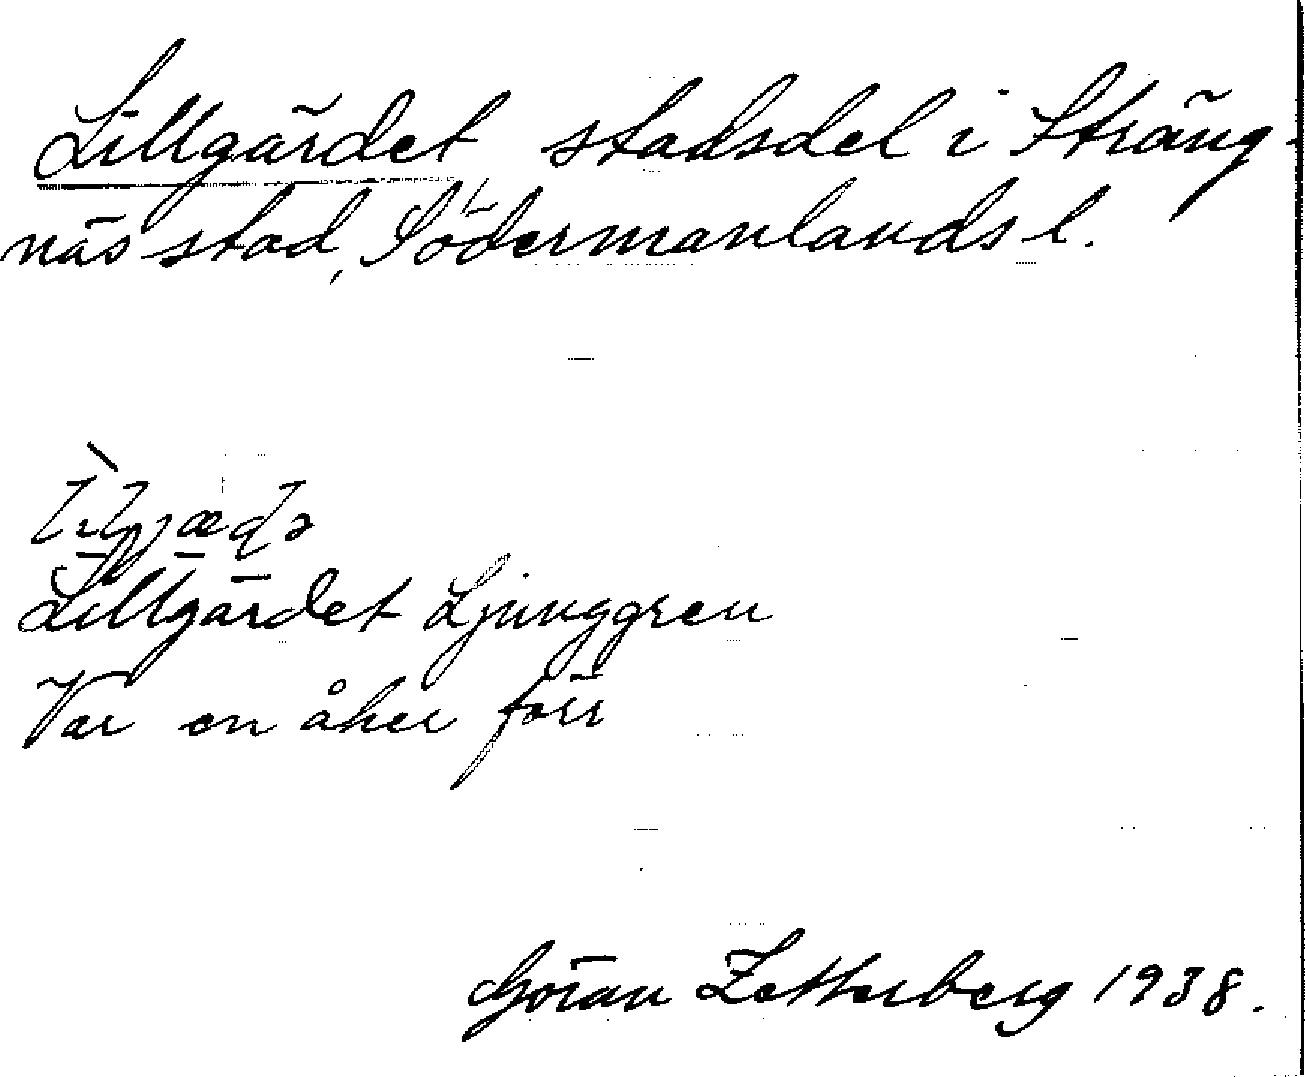 Lillgärdet, stadsdel i Sträng-
näs stad, Södermanlands l.
Lillgärdet Ljunggren
Var en åker förr
Göran Zetterberg 1938.